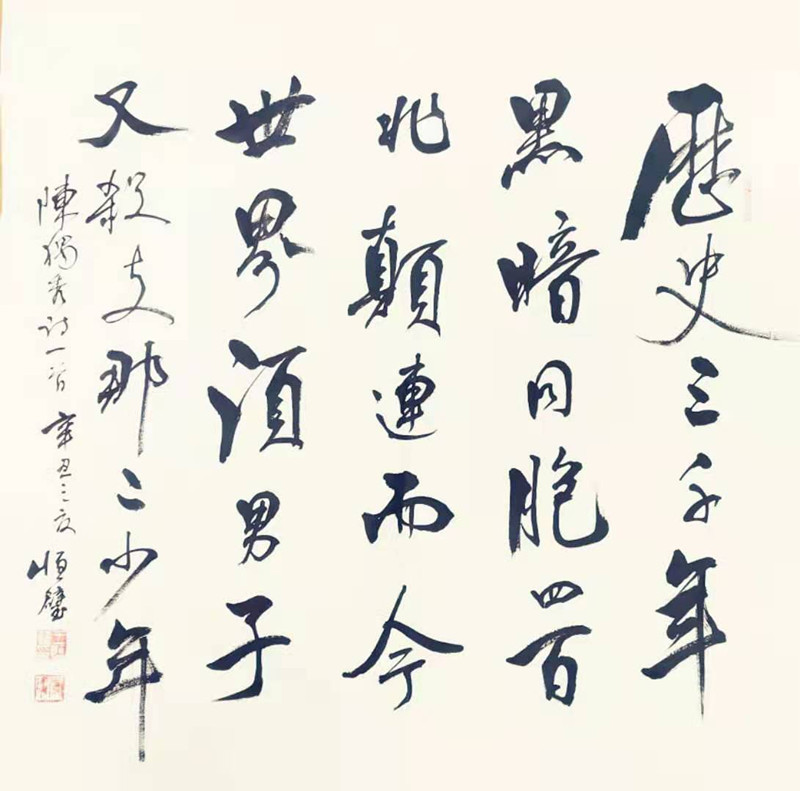 歷史三千年
黑暗同胞四百
兆顛連而今
世界須男子
又殺支那二少年
陳獨秀詩一首 辛丑之夏 恒璧